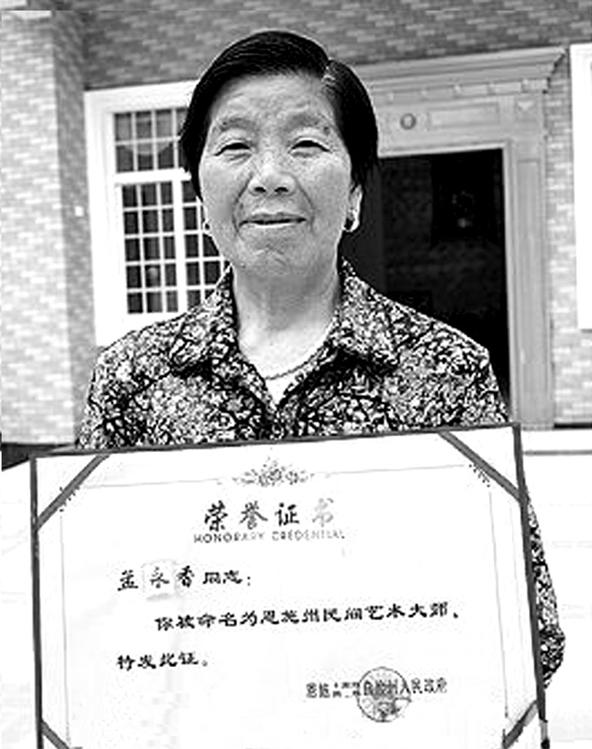 荣誉证书
HONORARY CREDENTIAL
孟永香同志：
你被命名为恩施州民间艺术大师、
特发此证。
恩施土家族苗族自治州人民政府